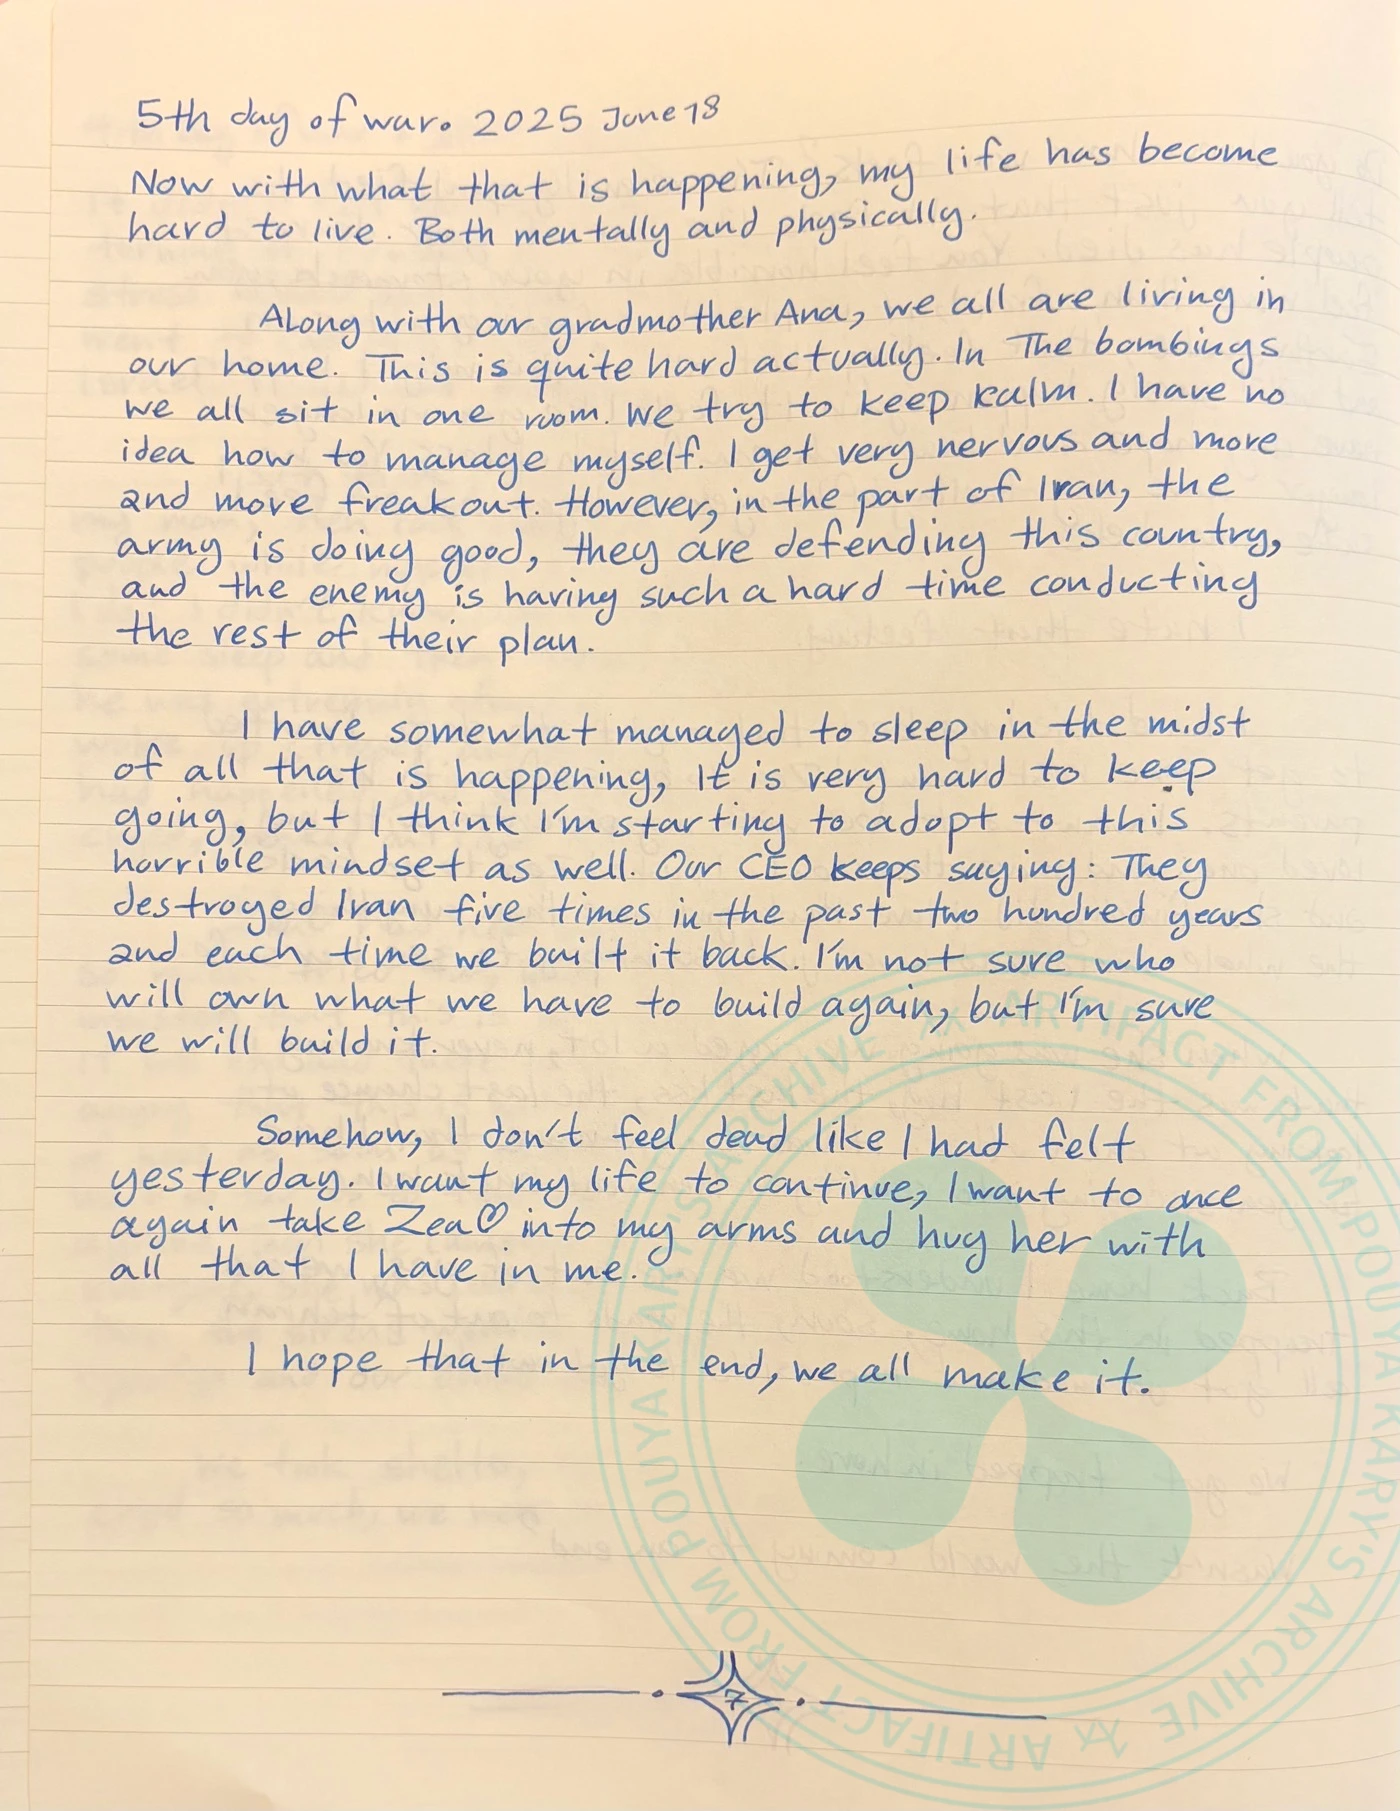 5th day of war. 2025 June 18
Now with what that is happening, my life has become
hard to live. Both mentally and physically.
Along with our gradmother Ana, we all are living in
our home. This is quite hard actually. In The bombings
we all sit in one room. We try to keep kalm. I have no
idea how to manage myself. I get very nervous and more
and more freak out. However, in the part of Iran, the
army is doing good, they are defending this country,
and the enemy is having such a hard time conducting
the rest of their plan.
I have somewhat managed to sleep in the midst
of all that is happening, It is very hard to keep
going, but I think I'm starting to adopt to this
horrible mindset as well. Our CEO keeps saying: They
destroyed Iran five times in the past two hundred years
and each time we built it back. I'm not sure who
will own what we have to build again, but I'm sure
we will build it.
Somehow, I don't feel dead like I had felt
yesterday. I want my life to continue, I want to once
again take Zea♡ into my arms and hug her with
all that I have in me.
I hope that in the end, we all make it.
7
ARTIFACT FROM POUYA KARIARY'S ARCHIVE
ARTIFACT FROM POUYA KARIARY'S ARCHIVE